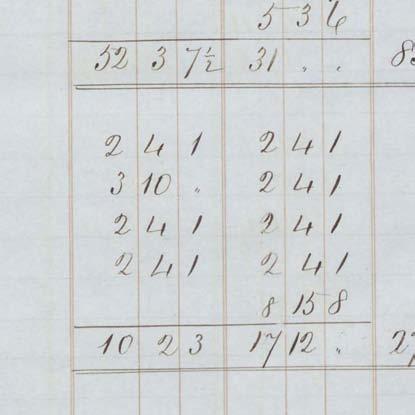 5 3 6
52 3 7½ 31 " " 8
2 4 1 2 4 1
3 10 " 2 4 1
2 4 1 2 4 1
2 4 1 2 4 1
8 15 8
10 2 3 17 12 " 27